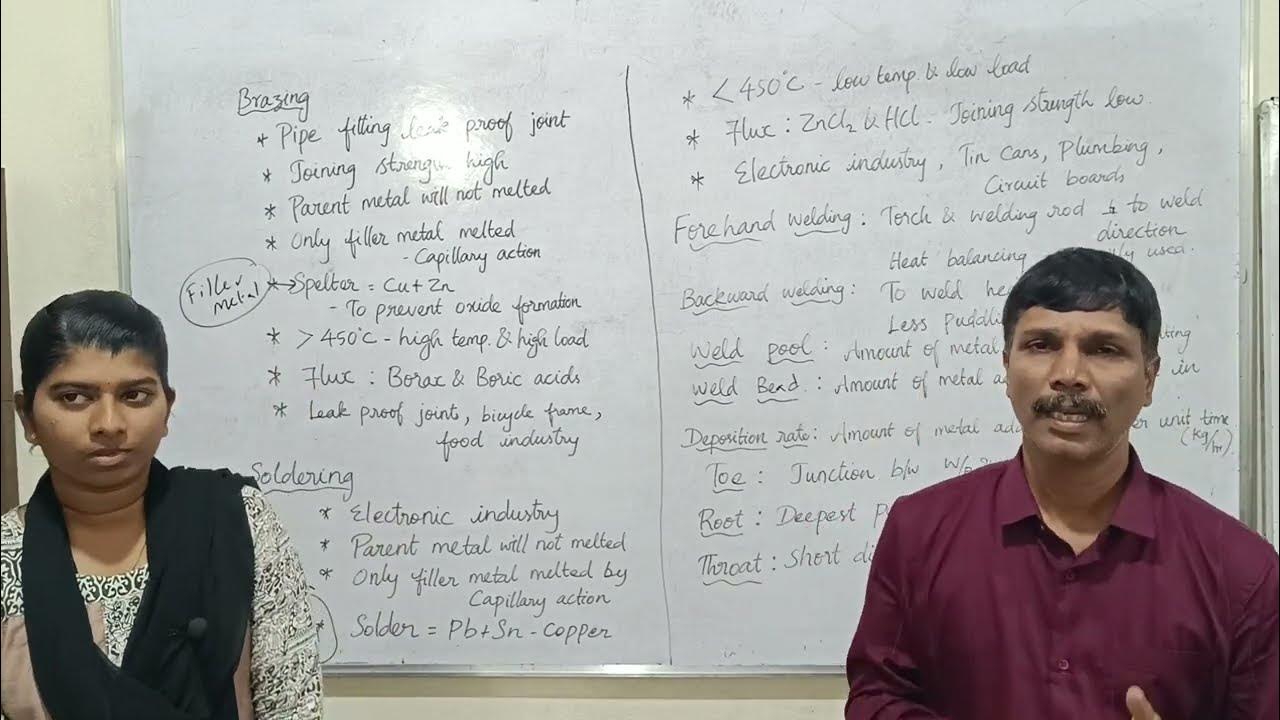 Brazing
* Pipe fitting leak proof joint
* Joining strength high
* Parent metal will not melted
* Only filler metal melted
- Capillary action
Filler metal * → Spelter = Cu + Zn
- To prevent oxide formation
* > 450°C - high temp. & high load
* Flux : Borax & Boric acids
* Leak proof joints, bicycle frame,
food industry
Soldering
* Electronic industry
* Parent metal will not melted
* Only filler metal melted by
Capillary action
* Solder = Pb + Sn - Copper
* < 450°C - low temp. & low load
* Flux : ZnCl2 & HCl - Joining strength low.
* Electronic industry, Tin cans, Plumbing,
Circuit boards
Forehand welding : Torch & welding rod to weld
direction
Heat balancing used.
Backward welding : To weld
Less
Weld pool : Amount of metal
Weld Bead : Amount of metal in
Deposition rate : Amount of metal unit time
(kg/hr).
Toe : Junction b/w
Root : Deepest
Throat : Short